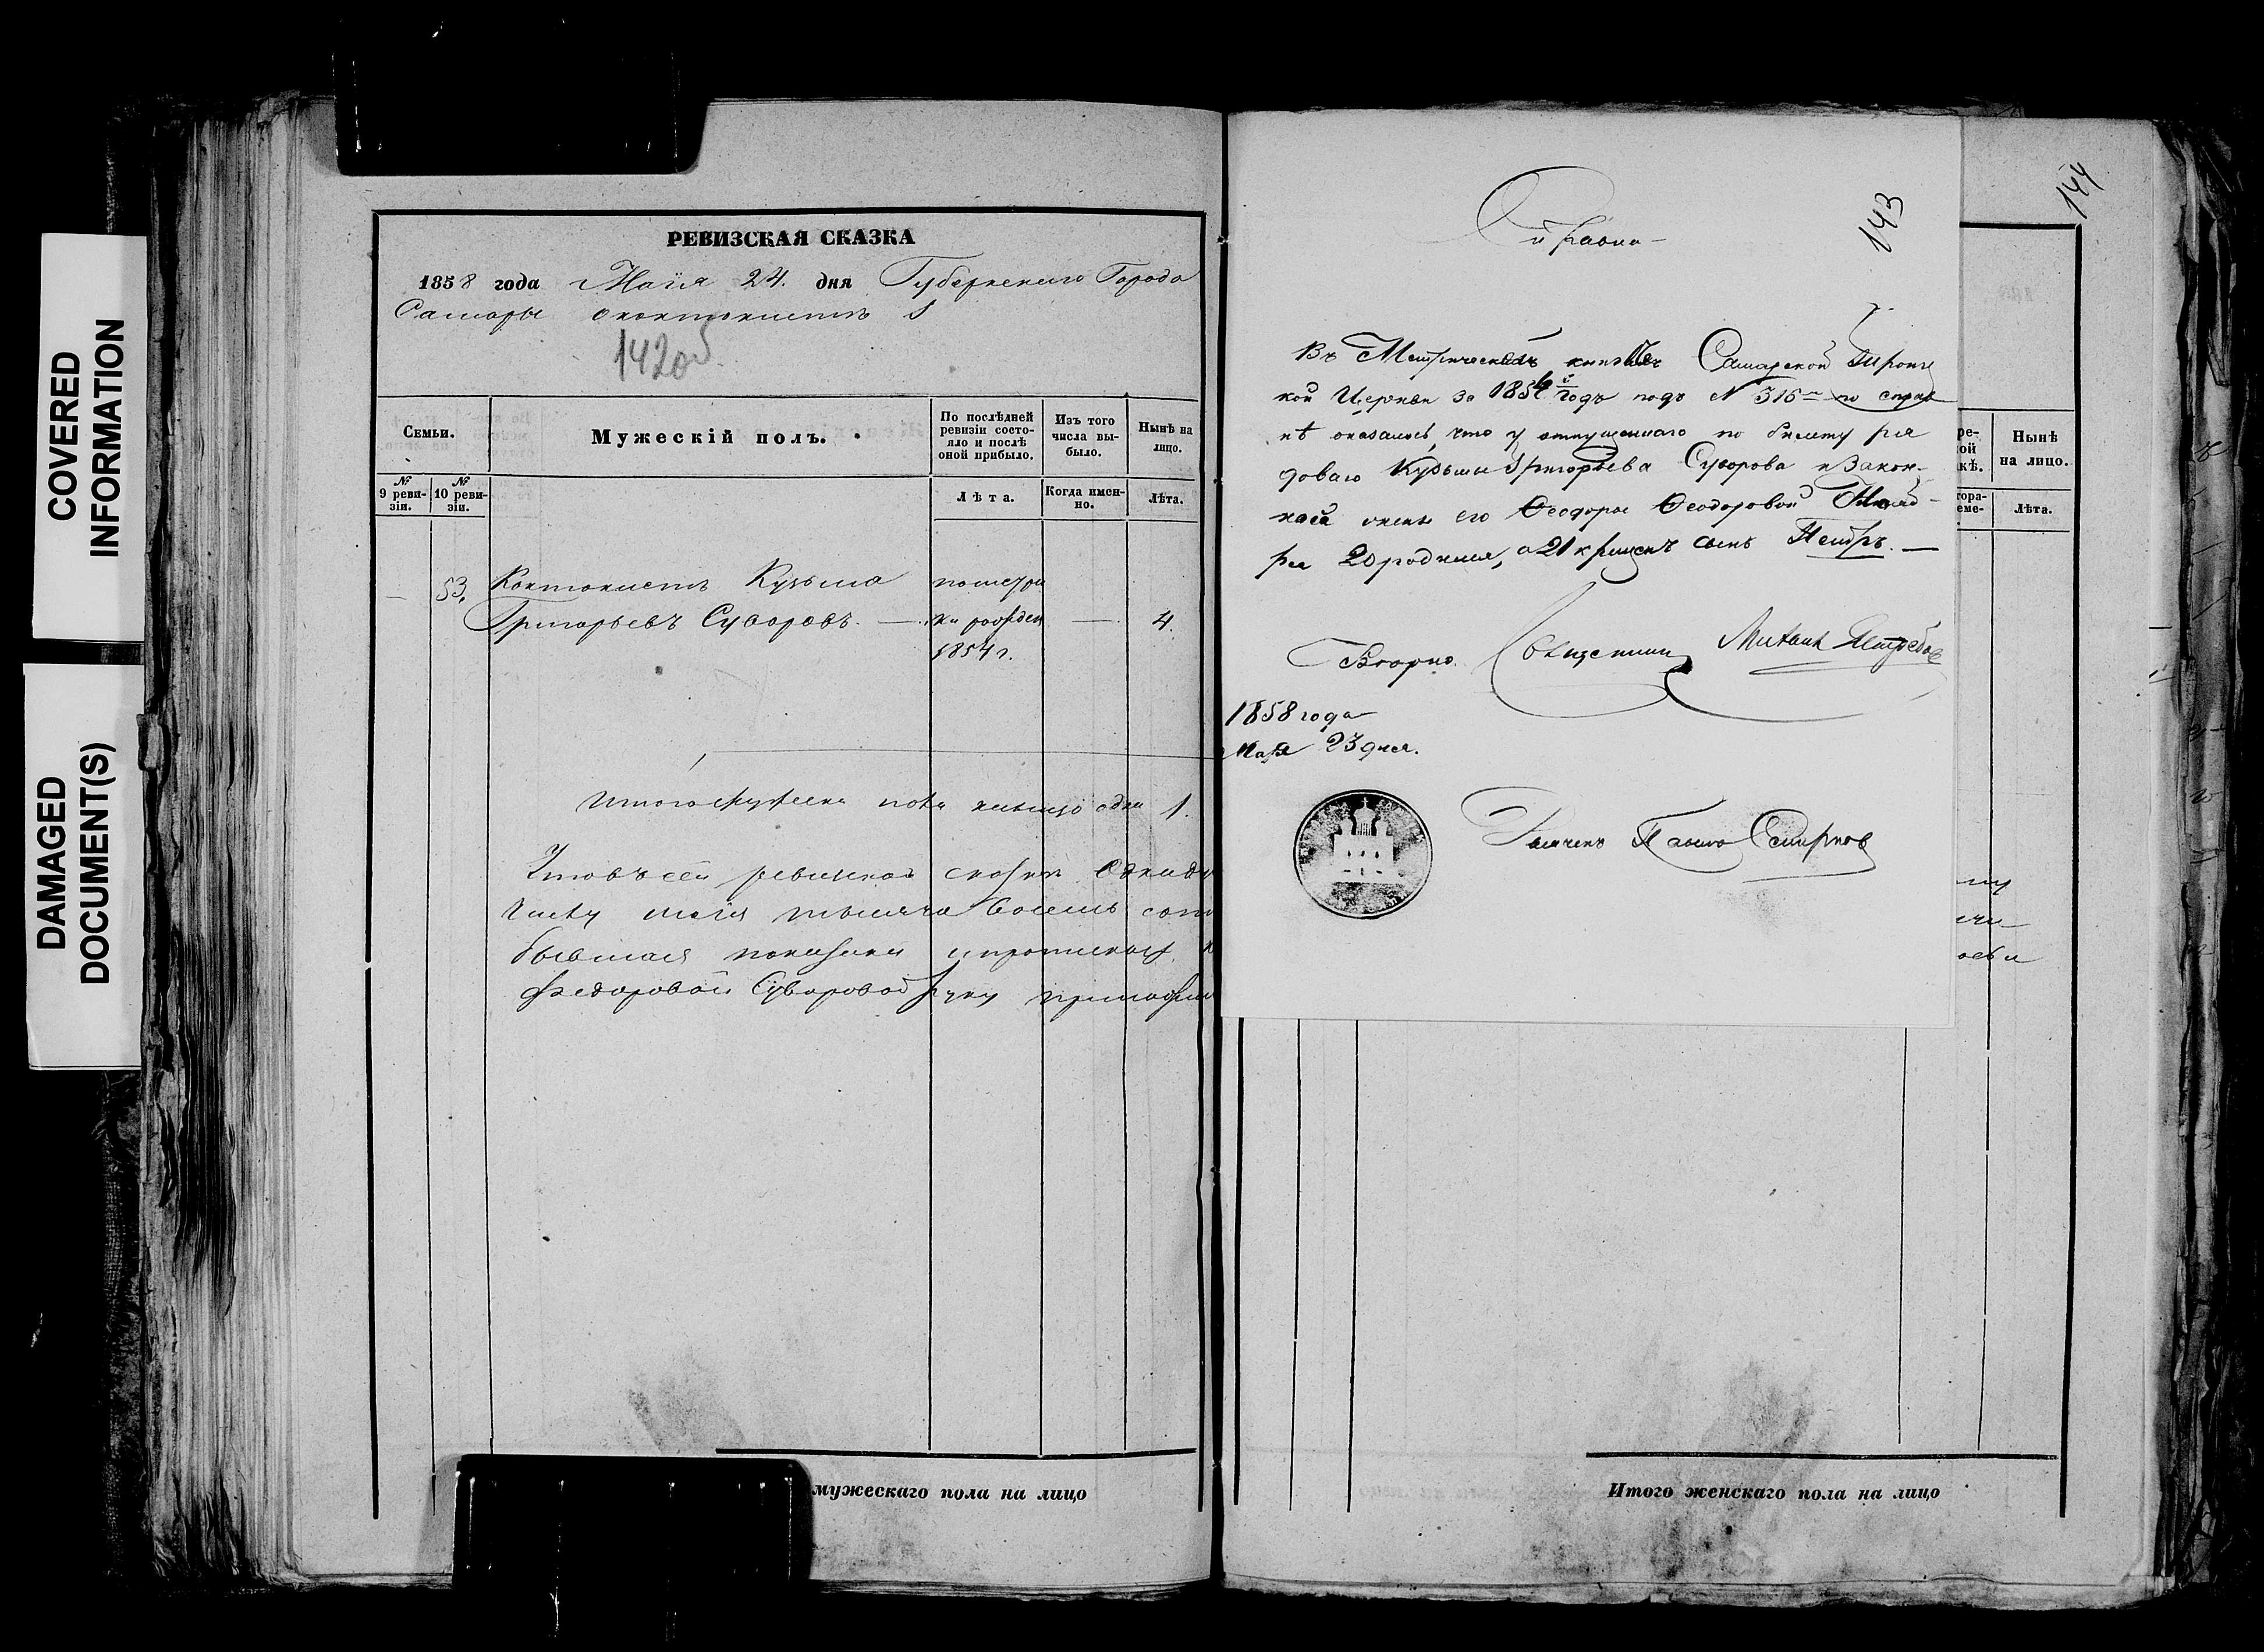 COVERED
INFORMATION
DAMAGED
DOCUMENT(S)
РЕВИЗСКАЯ СКАЗКА
1858 года Маія 24. дня Губернскаго Города
Самары о кантонистѣ
142об
Семьи.
Мужескій полъ.
По послѣдней
ревизіи состо-
яло и послѣ
оной прибыло.
Изъ того
числа вы-
было.
Нынѣ на
лицо.
№
9 реви-
зіи.
№
10 реви-
зіи.
Лѣта.
Когда имен-
но.
Лѣта.
53.
Кантонистъ Кузьма
Григорьевъ Суворовъ.
по метри
ки рожден
1854 г.
4.
Итого мужеска пола налицо один 1.
Что въ сей ревизкой сказки
числу маія тысяча восемь сотъ
Федоровой Суворовой руку приложи
мужескаго пола на лицо
143
Справка
Въ Метрической книгѣ Самарской Троиц
кой Церкви за 1854й годъ подъ № 316м по справ
кѣ оказалось, что у отпущеннаго по билету ря
доваго Кузьмы Григорьева Суворова и закон-
ной жены его Ѳеодоры Ѳеодоровой Нояб-
ря 20 родился, а 21 крещенъ сынъ Петръ.
Вѣрно. Священник Михаил Ястребов
1858 года
Мая 23 дня.
Дьячекъ Павел Смирнов
144
ре-
ой
кѣ.
Нынѣ
на лицо.
тора-
еме-
Лѣта.
Итого женскаго пола на лицо